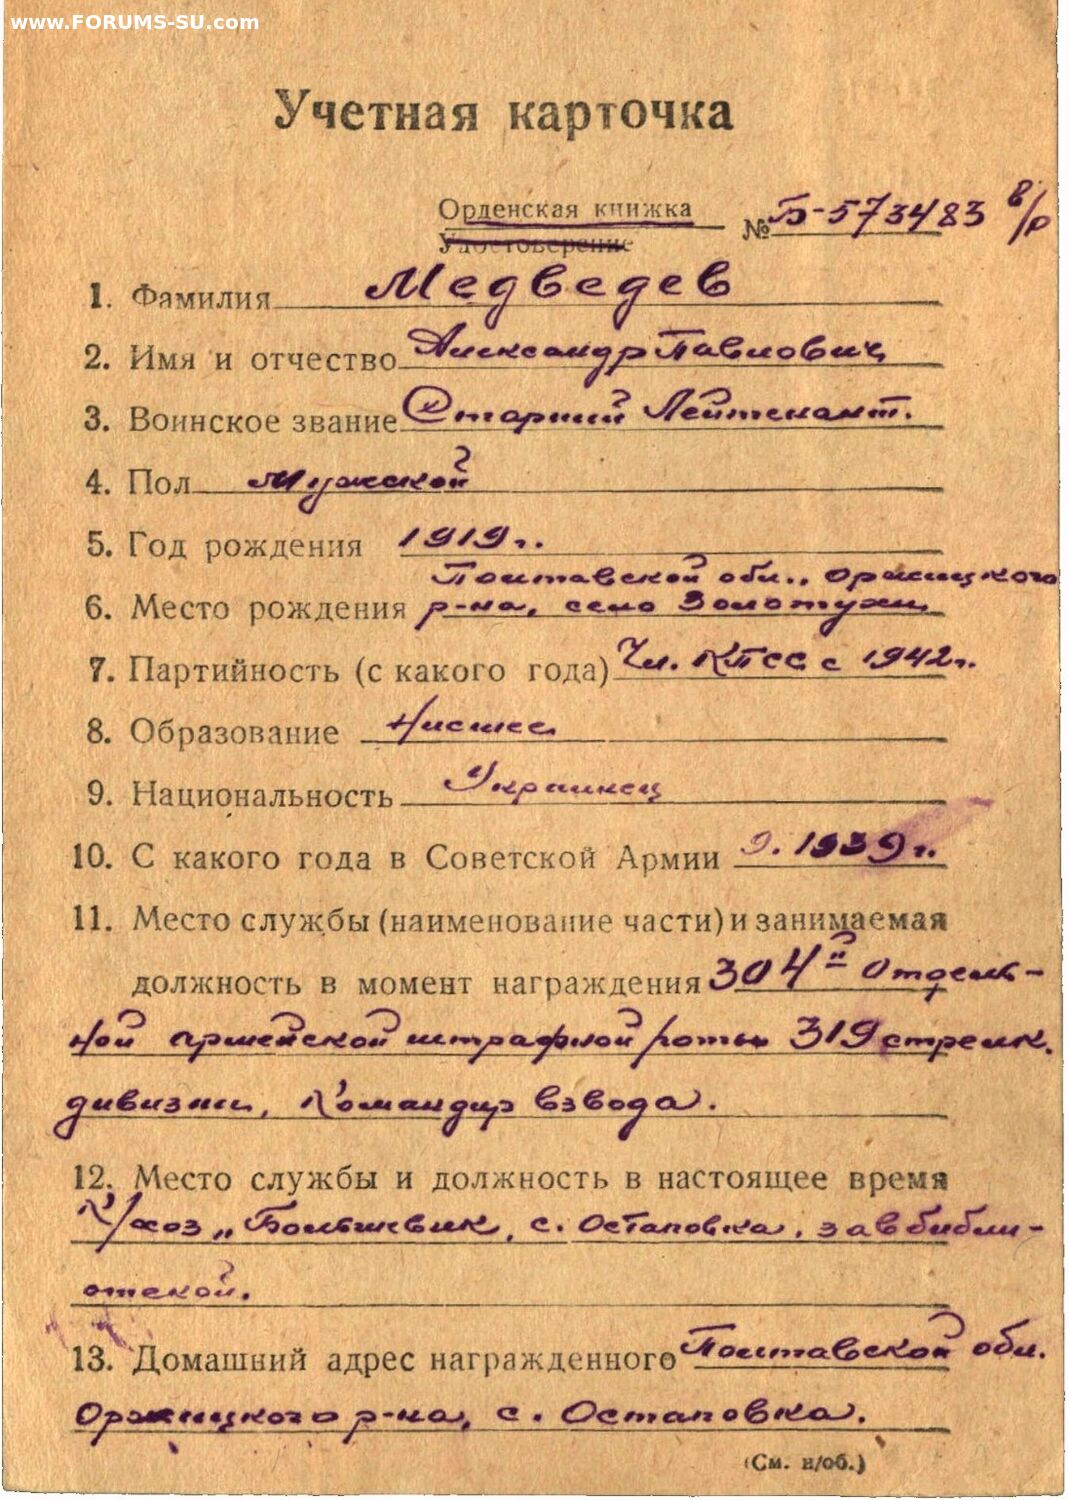 www.FORUMS-SU.com
Учетная карточка
Орденская книжка
Удостоверение
№ Б-573483 в/р
1. Фамилия Медведев
2. Имя и отчество Александр Павлович
3. Воинское звание Старший Лейтенант.
4. Пол Мужской
5. Год рождения 1919 г.
Полтавской обл., Оржицкого
6. Место рождения р-на, село Золотухи
7. Партийность (с какого года) Чл. КПСС с 1942 г.
8. Образование Низшее
9. Национальность Украинец
10. С какого года в Советской Армии 9. 1939 г.
11. Место службы (наименование части) и занимаемая
должность в момент награждения 304й Отдель-
ной армейской штрафной роты 319 стрелк.
дивизии, Командир взвода.
12. Место службы и должность в настоящее время
К/хоз „Большевик, с. Остаповка, завбибли-
отекой.
13. Домашний адрес награжденного Полтавской обл.
Оржицкого р-на, с. Остаповка.
(См. н/об.)